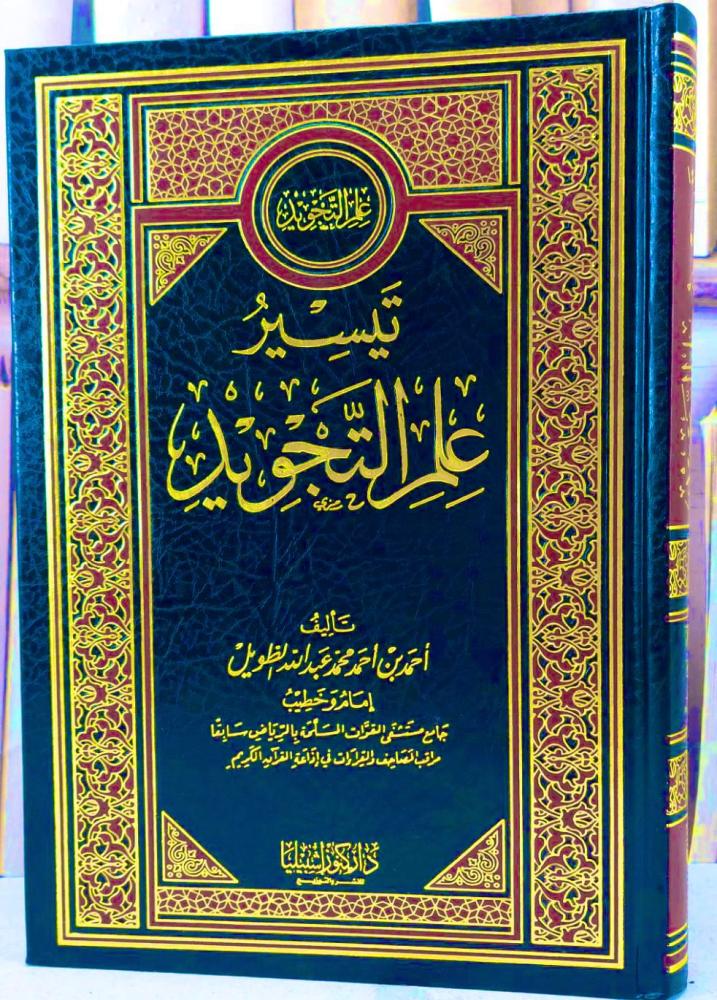 علم التجويد
تَيسِيْرُ
عِلمِ التَّجْوِيْدِ
تأليفُ
أحمد بن أحمد محمد عبد الله الطويل
إمام وخطيب
جامع مستشفى القوات المسلحة بالرياض سابقا
مراقب المصاحف والقراءات في إذاعة القرآن الكريم
دار كنوز إشبيليا
للنشر والتوزيع